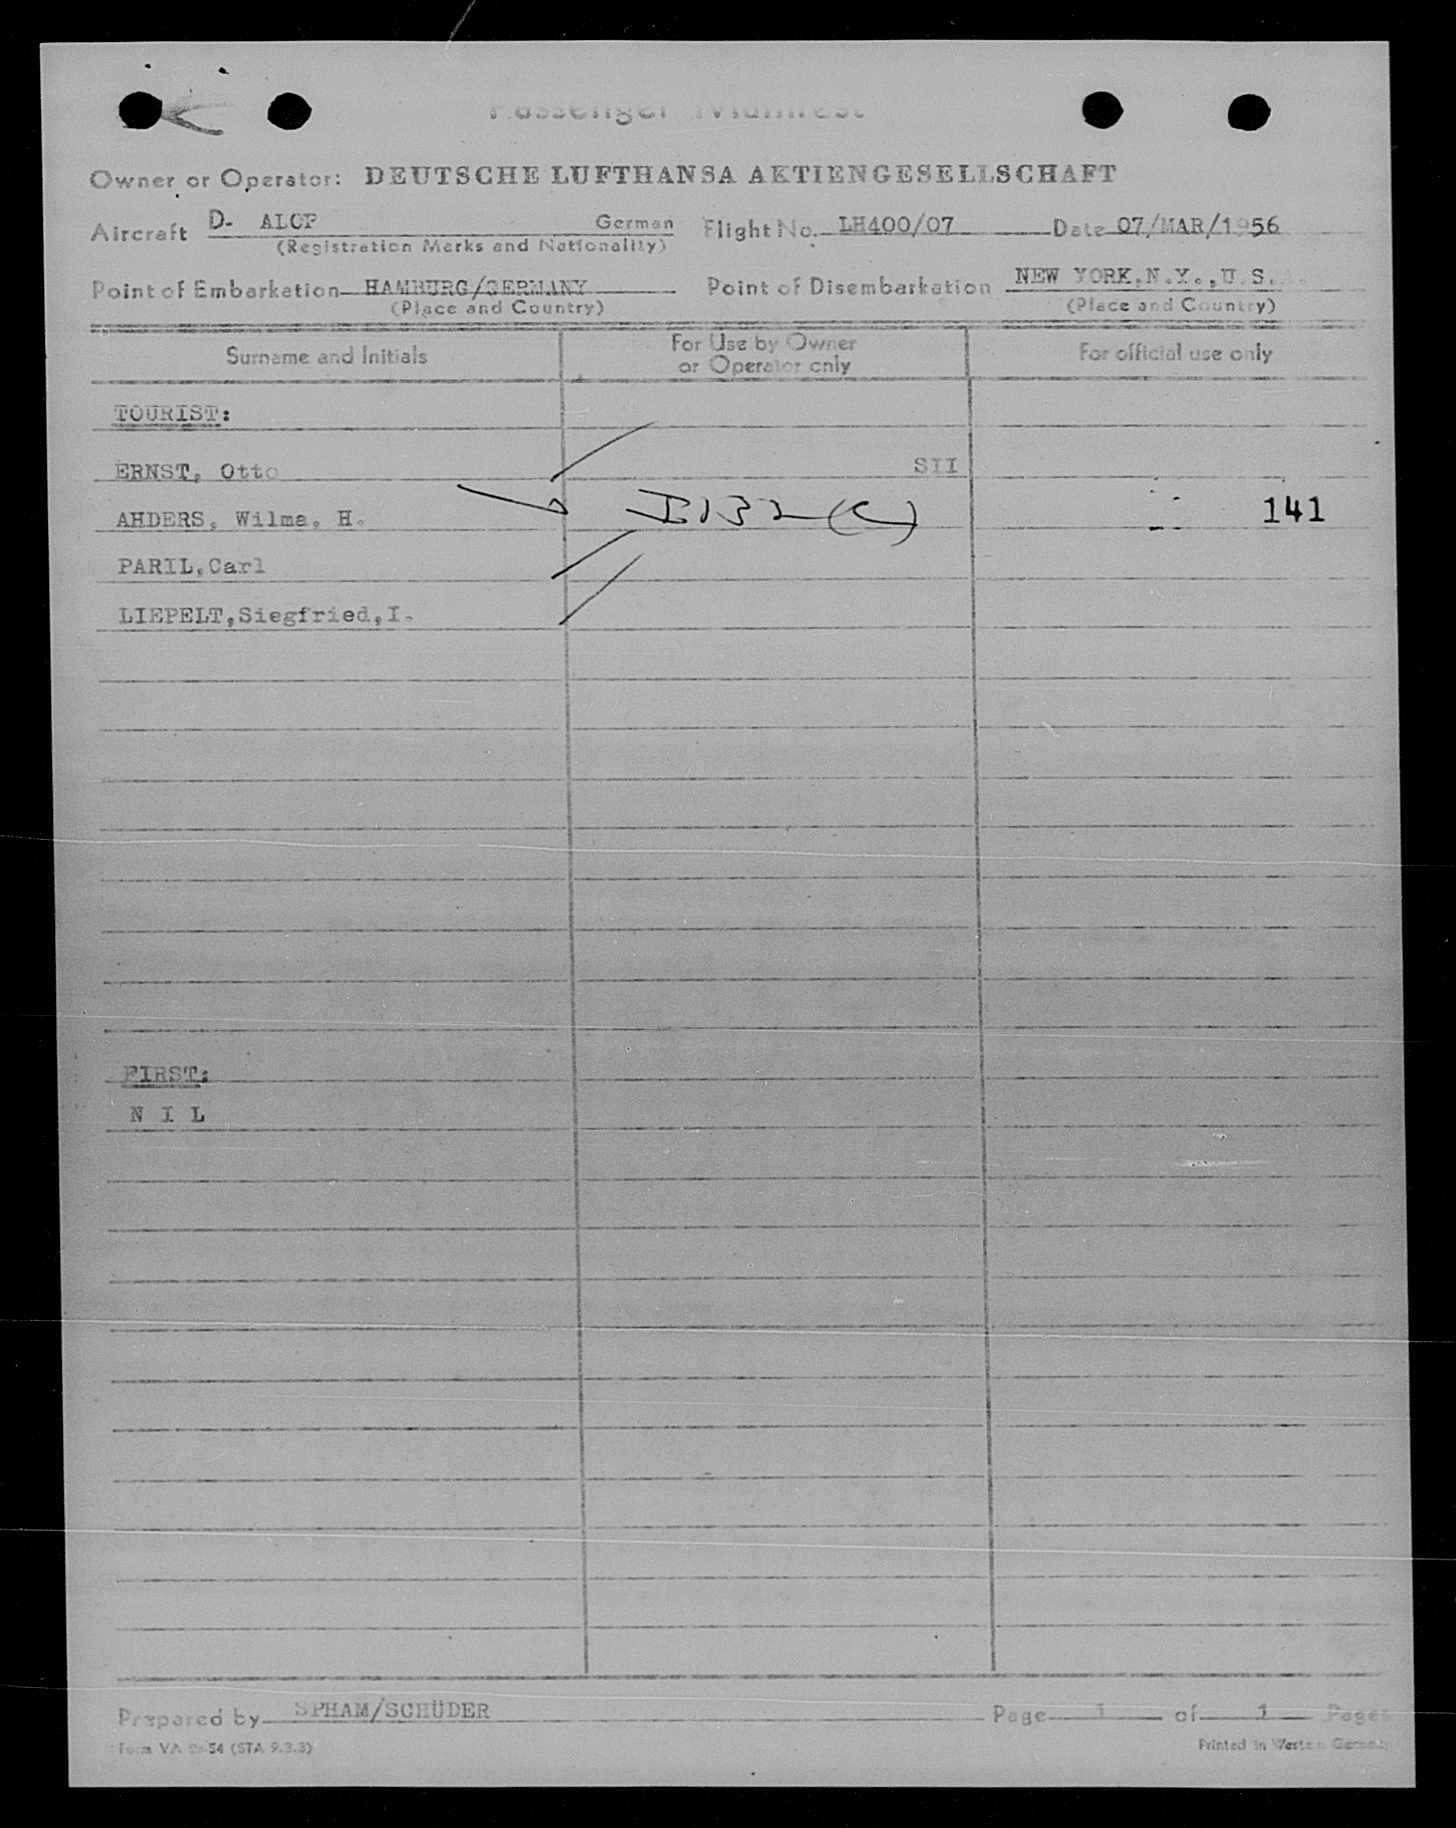 Passenger Manifest
Owner or Operator: DEUTSCHE LUFTHANSA AKTIENGESELLSCHAFT
Aircraft D- ALOP German Flight No. LH400/07 Date 07/MAR/1956
(Registration Marks and Nationality)
Point of Embarkation HAMBURG/GERMANY Point of Disembarkation NEW YORK,N.Y.,U.S.A.
(Place and Country) (Place and Country)
Surname and Initials For Use by Owner or Operator only For official use only
TOURIST:
ERNST, Otto SII
AHDERS, Wilma, H. 141
PARIL,Carl
LIEPELT,Siegfried,I.
FIRST:
N I L
Prepared by SPHAM/SCHÜDER Page 1 of 1 Pages
Form VA 54 (STA 9.3.3) Printed in Western Germany